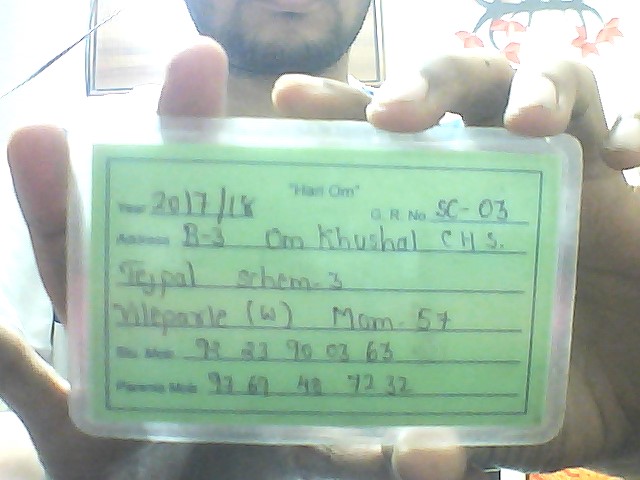 "Hari Om"
Year 2017/18 G. R. No. SC-03
Address B-3 Om Khushal C H S.
Tejpal schem-3
Vileparle (W) Mum-57
Stu. Mob.
Parents Mob.